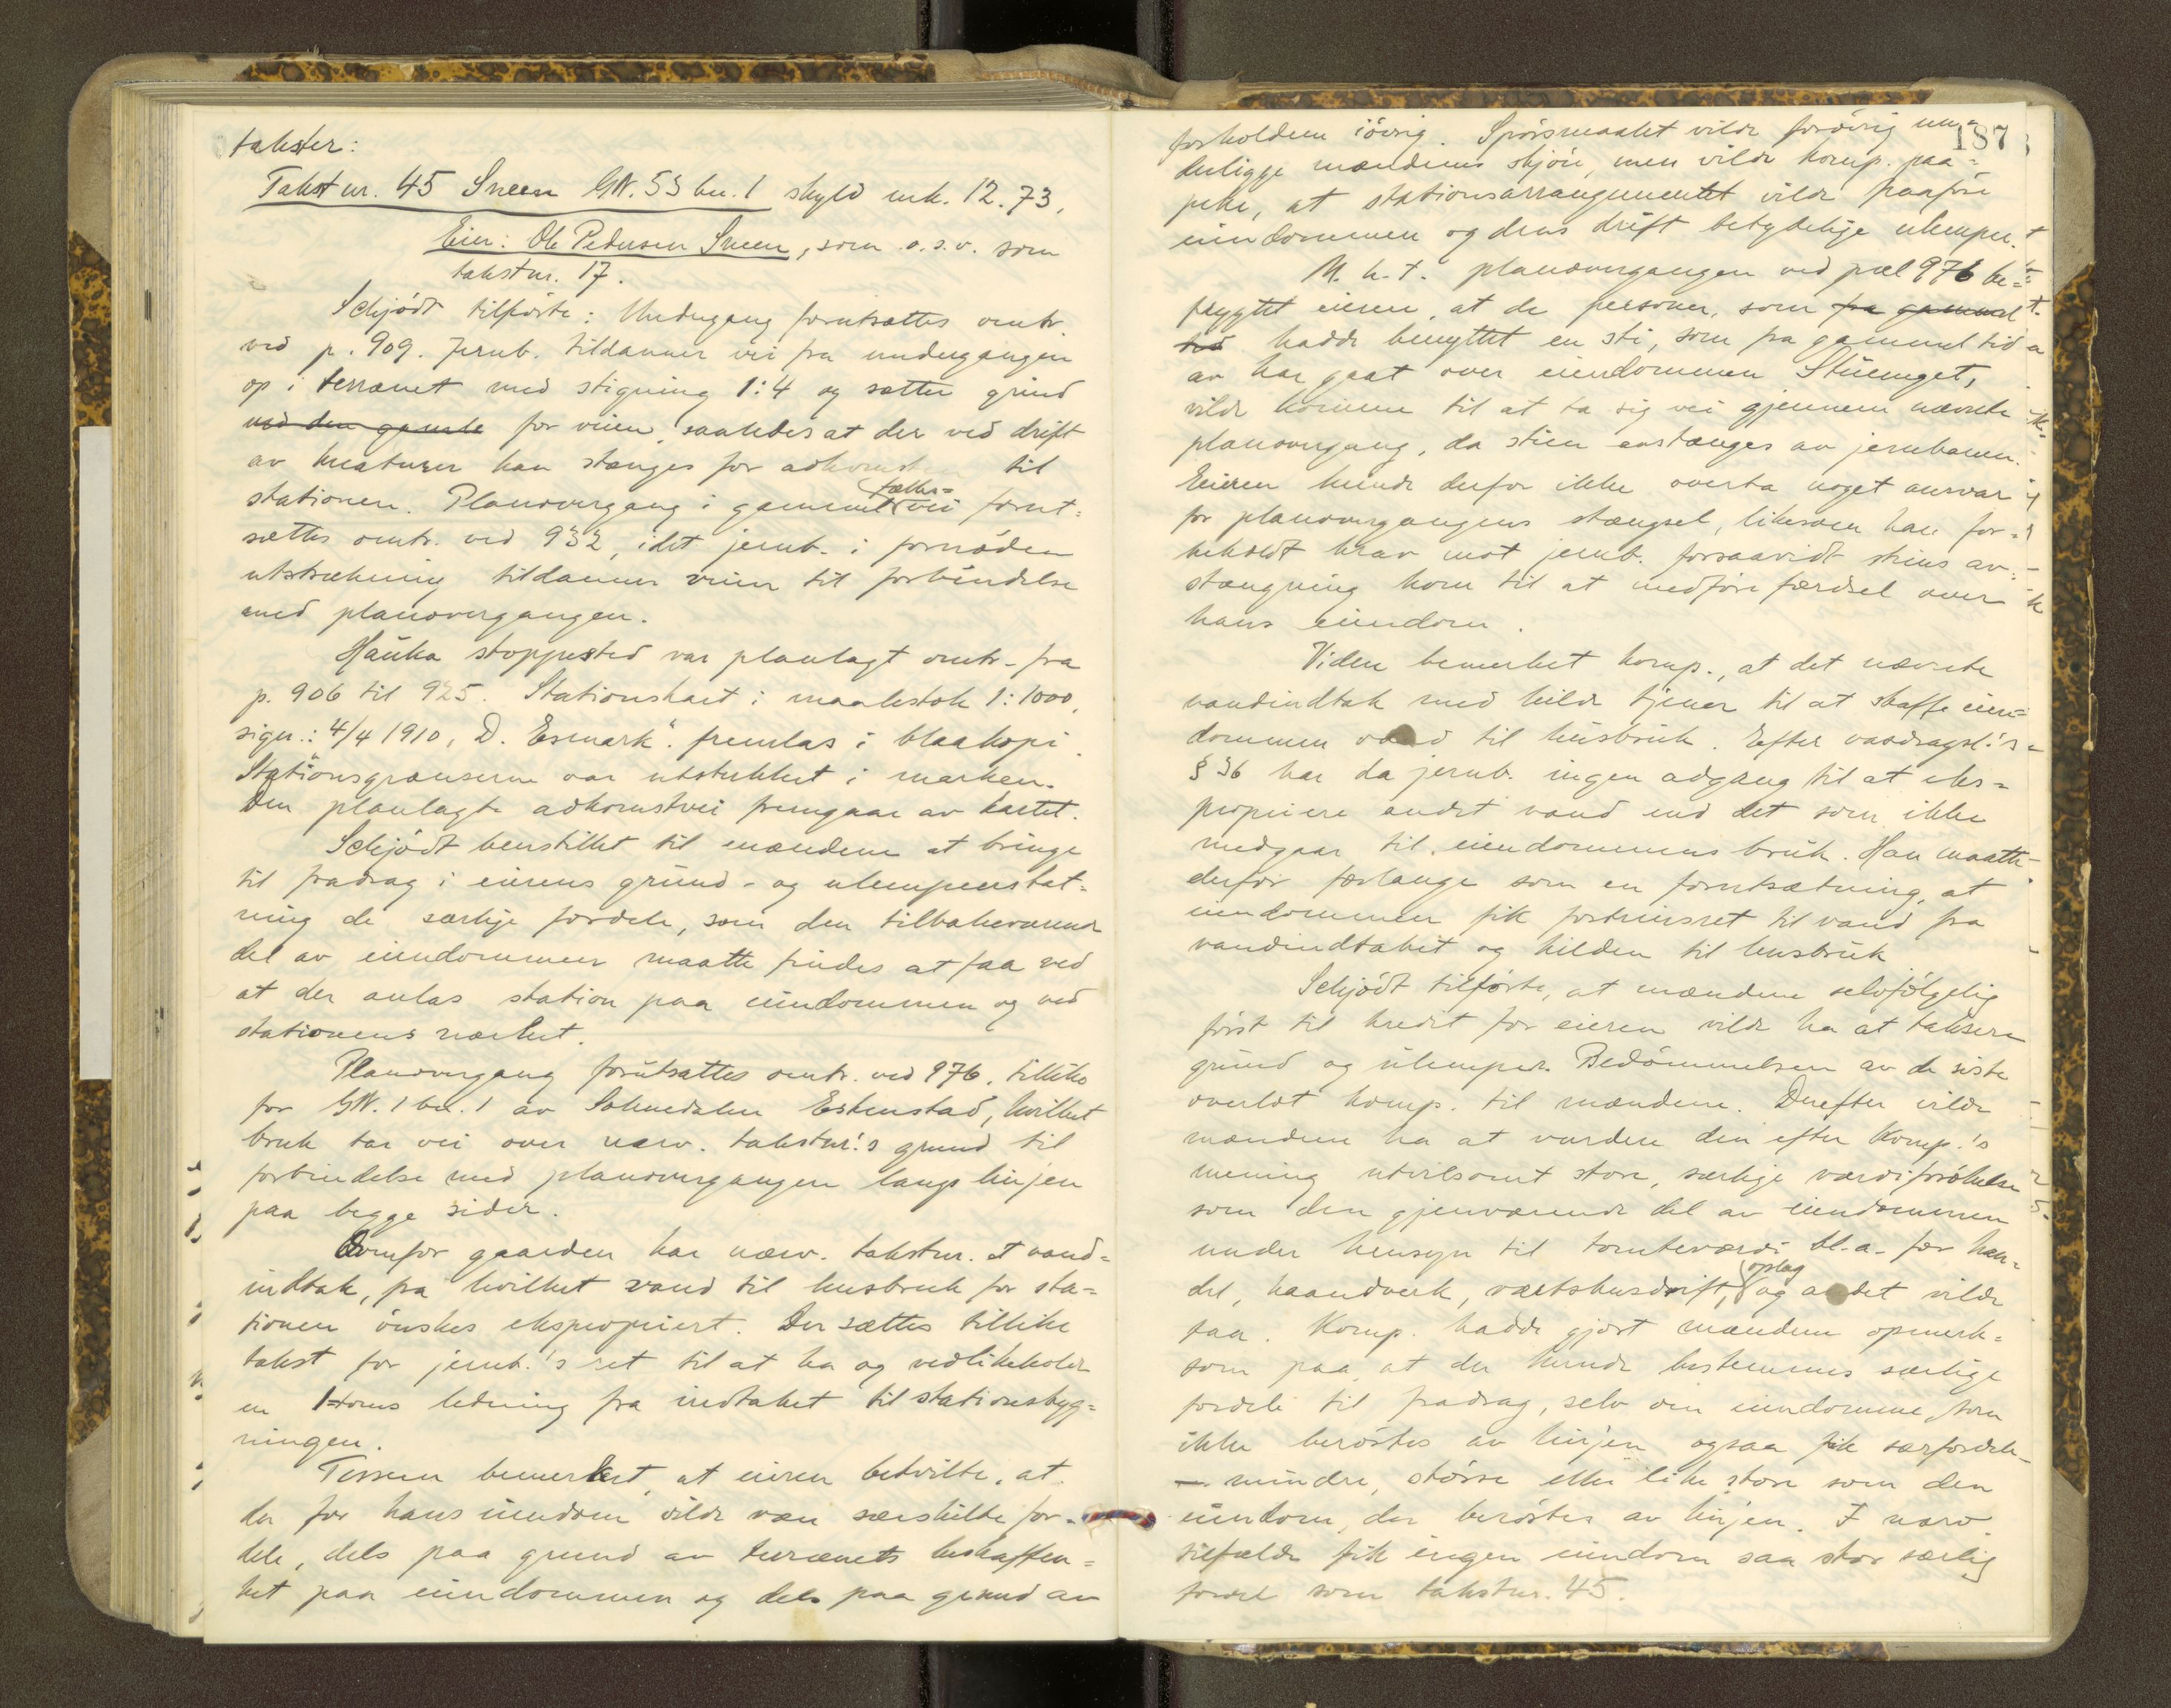 takster:
Takst nr. 45 Sneen GN. 53 bn. 1 skyld mk. 12.73,
Eier: Ole Pedersen Sneen, som o.s.v. som
takstnr. 17.
Schjödt tilförte: Undergang forutsættes omtr.
ved p. 909. Jernb. tildanner vei fra undergangen
op i terrænet med stigning 1:4 og sætter grind
ved den gamle for veien, saaledes at der ved drift
av kreaturer kan stænges for adkomsten til
stationen. Planovergang i gammel vei forut=
fæller=
sættes omtr. ved 932, idet jernb. i fornöden
utstrækning tildanner veien til forbindelse
med planovergangen.
Hauka stoppested var planlagt omtr. fra
p. 906 til 925. Stationskart i maalestok 1:1000,
sign.: "4/4 1910, D. Esmark". fremlas i blaakopi.
Stationsgrænserne var utstukket i marken.
Den planlagte adkomstvei fremgaar av kartet.
Schjödt henstillet til mændene at bringe
til fradrag i eierens grund- og ulempeerstat=
ning de særlige fordele, som den tilbakeværende
del av eiendommen maatte findes at faa ved
at der anlas station paa eiendommen og ved
stationens nærhet.
Planovergang forutsættes omtr. ved 976, tillike
for GN. 1 bn. 1 av Soknedalen Estenstad, hvilket
bruk tar vei over nærv. takstnr.'s grund til
forbindelse med planovergangen langs linjen
paa begge sider.
Ovenfor gaarden har nærv. takstnr. et vand=
indtak, fra hvilket vand til husbruk for sta=
tionen önskes ekspropriert. Der sættes tillike
takst for jernb.'s ret til at ha og vedlikeholde
en 1-toms ledning fra indtaket til stationsbyg=
ningen.
Tessem bemerket, at eieren betvilte, at
der for hans eiendom vilde være særskilte for=
dele, dels paa grund av terrænets beskaffen=
het paa eiendommen og dels paa grund av
187
forholdene iövrig. Spörsmaalet vilde forövrig un=
derligge mændenes skjön, men vilde komp. paa=
peke, at stationsarrangementet vilde paaföre
eiendommen og dens drift betydelige ulemper.
M. h. t. planovergangen ved pæl 976 be=
frygtet eieren, at de personer, som fra gammel
tid hadde benyttet en sti, som fra gammel tid
av har gaat over eiendommen Stuenget,
vilde komme til at ta sig vei gjennem nævnte
planovergang, da stien avstænges av jernbanen.
Eieren kunde derfor ikke overta noget ansvar
for planovergangens stængsel, likesom han for=
beholdt krav mot jernb. forsaavidt stiens av=
stængning kom til at medföre færdsel over
hans eiendom.
Videre bemerket komp., at det nævnte
vandindtak med kilde tjener til at skaffe eien=
dommen vand til husbruk. Efter vasdragsl.'s
§ 36 har da jernb. ingen adgang til at eks=
propriere andet vand end det som ikke
medgaar til eiendommens bruk. Han maatte
derfor forlange som en forutsætning, at
eiendommen fik fortrinsret til vand fra
vandindtaket og kilden til husbruk
Schjödt tilförte, at mændene selvfölgelig
först til kredit for eieren vilde ha at taksere
grund og ulemper. Bedömmelsen av de siste
overlot komp. til mændene. Derefter vilde
mændene ha at vurdere den efter komp.'s
mening utvilsomt store, særlige værdiforökelse
som den gjenværende del av eiendommen
under hensyn til tomteværdi bl.a. for han=
del, haandverk, værtshusdrift, og andet vilde
oplag
faa. Komp. hadde gjort mændene opmerk=
som paa, at der kunde bestemmes særlige
fordele til fradrag, selv om eiendomme, som
ikke beröres av linjen ogsaa fik særfordele
– mindre, större eller like store som den
eiendom, der beröres av linjen. I nærv.
tilfælde fik ingen eiendom saa stor særlig
fordel som takstnr. 45.